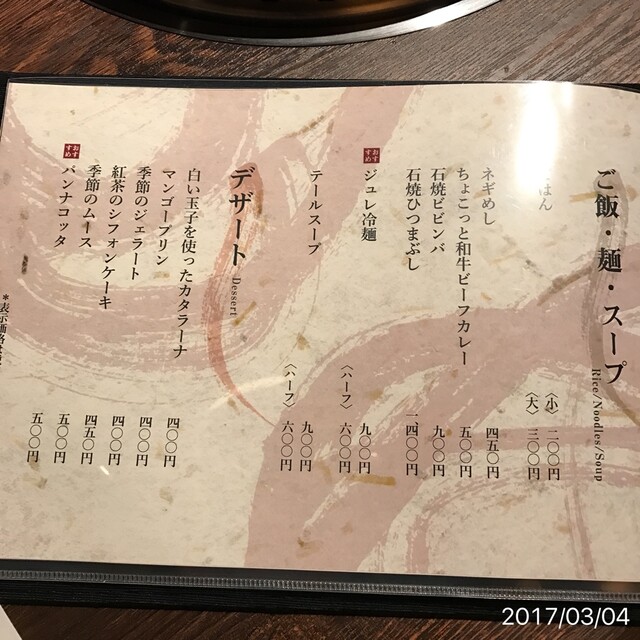 ご飯・麺・スープ Rice/Noodles/Soup
はん 〈小〉 二〇〇円
〈大〉 三〇〇円
ネギめし 四五〇円
ちょこっと和牛ビーフカレー 五〇〇円
石焼ビビンバ 九〇〇円
石焼ひつまぶし 一四〇〇円
おすすめ ジュレ冷麺 九〇〇円
〈ハーフ〉 六〇〇円
テールスープ 九〇〇円
〈ハーフ〉 六〇〇円
デザート Dessert
白い玉子を使ったカタラーナ 四〇〇円
マンゴープリン 四〇〇円
季節のジェラート 四〇〇円
紅茶のシフォンケーキ 四五〇円
季節のムース 五〇〇円
おすすめ パンナコッタ 五〇〇円
＊表示価格は
2017/03/04